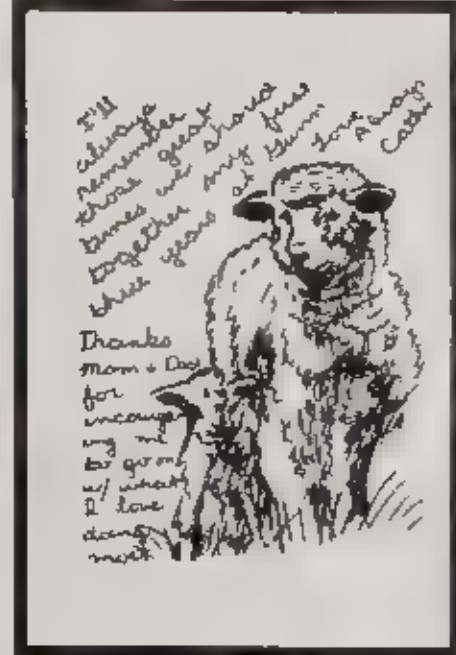 I'll
always
remember
those great
times we shared
together my first
three years at
Love always
Thanks
Mom + Dad
for
ing me
to go on
w/ what
I love
doing
most